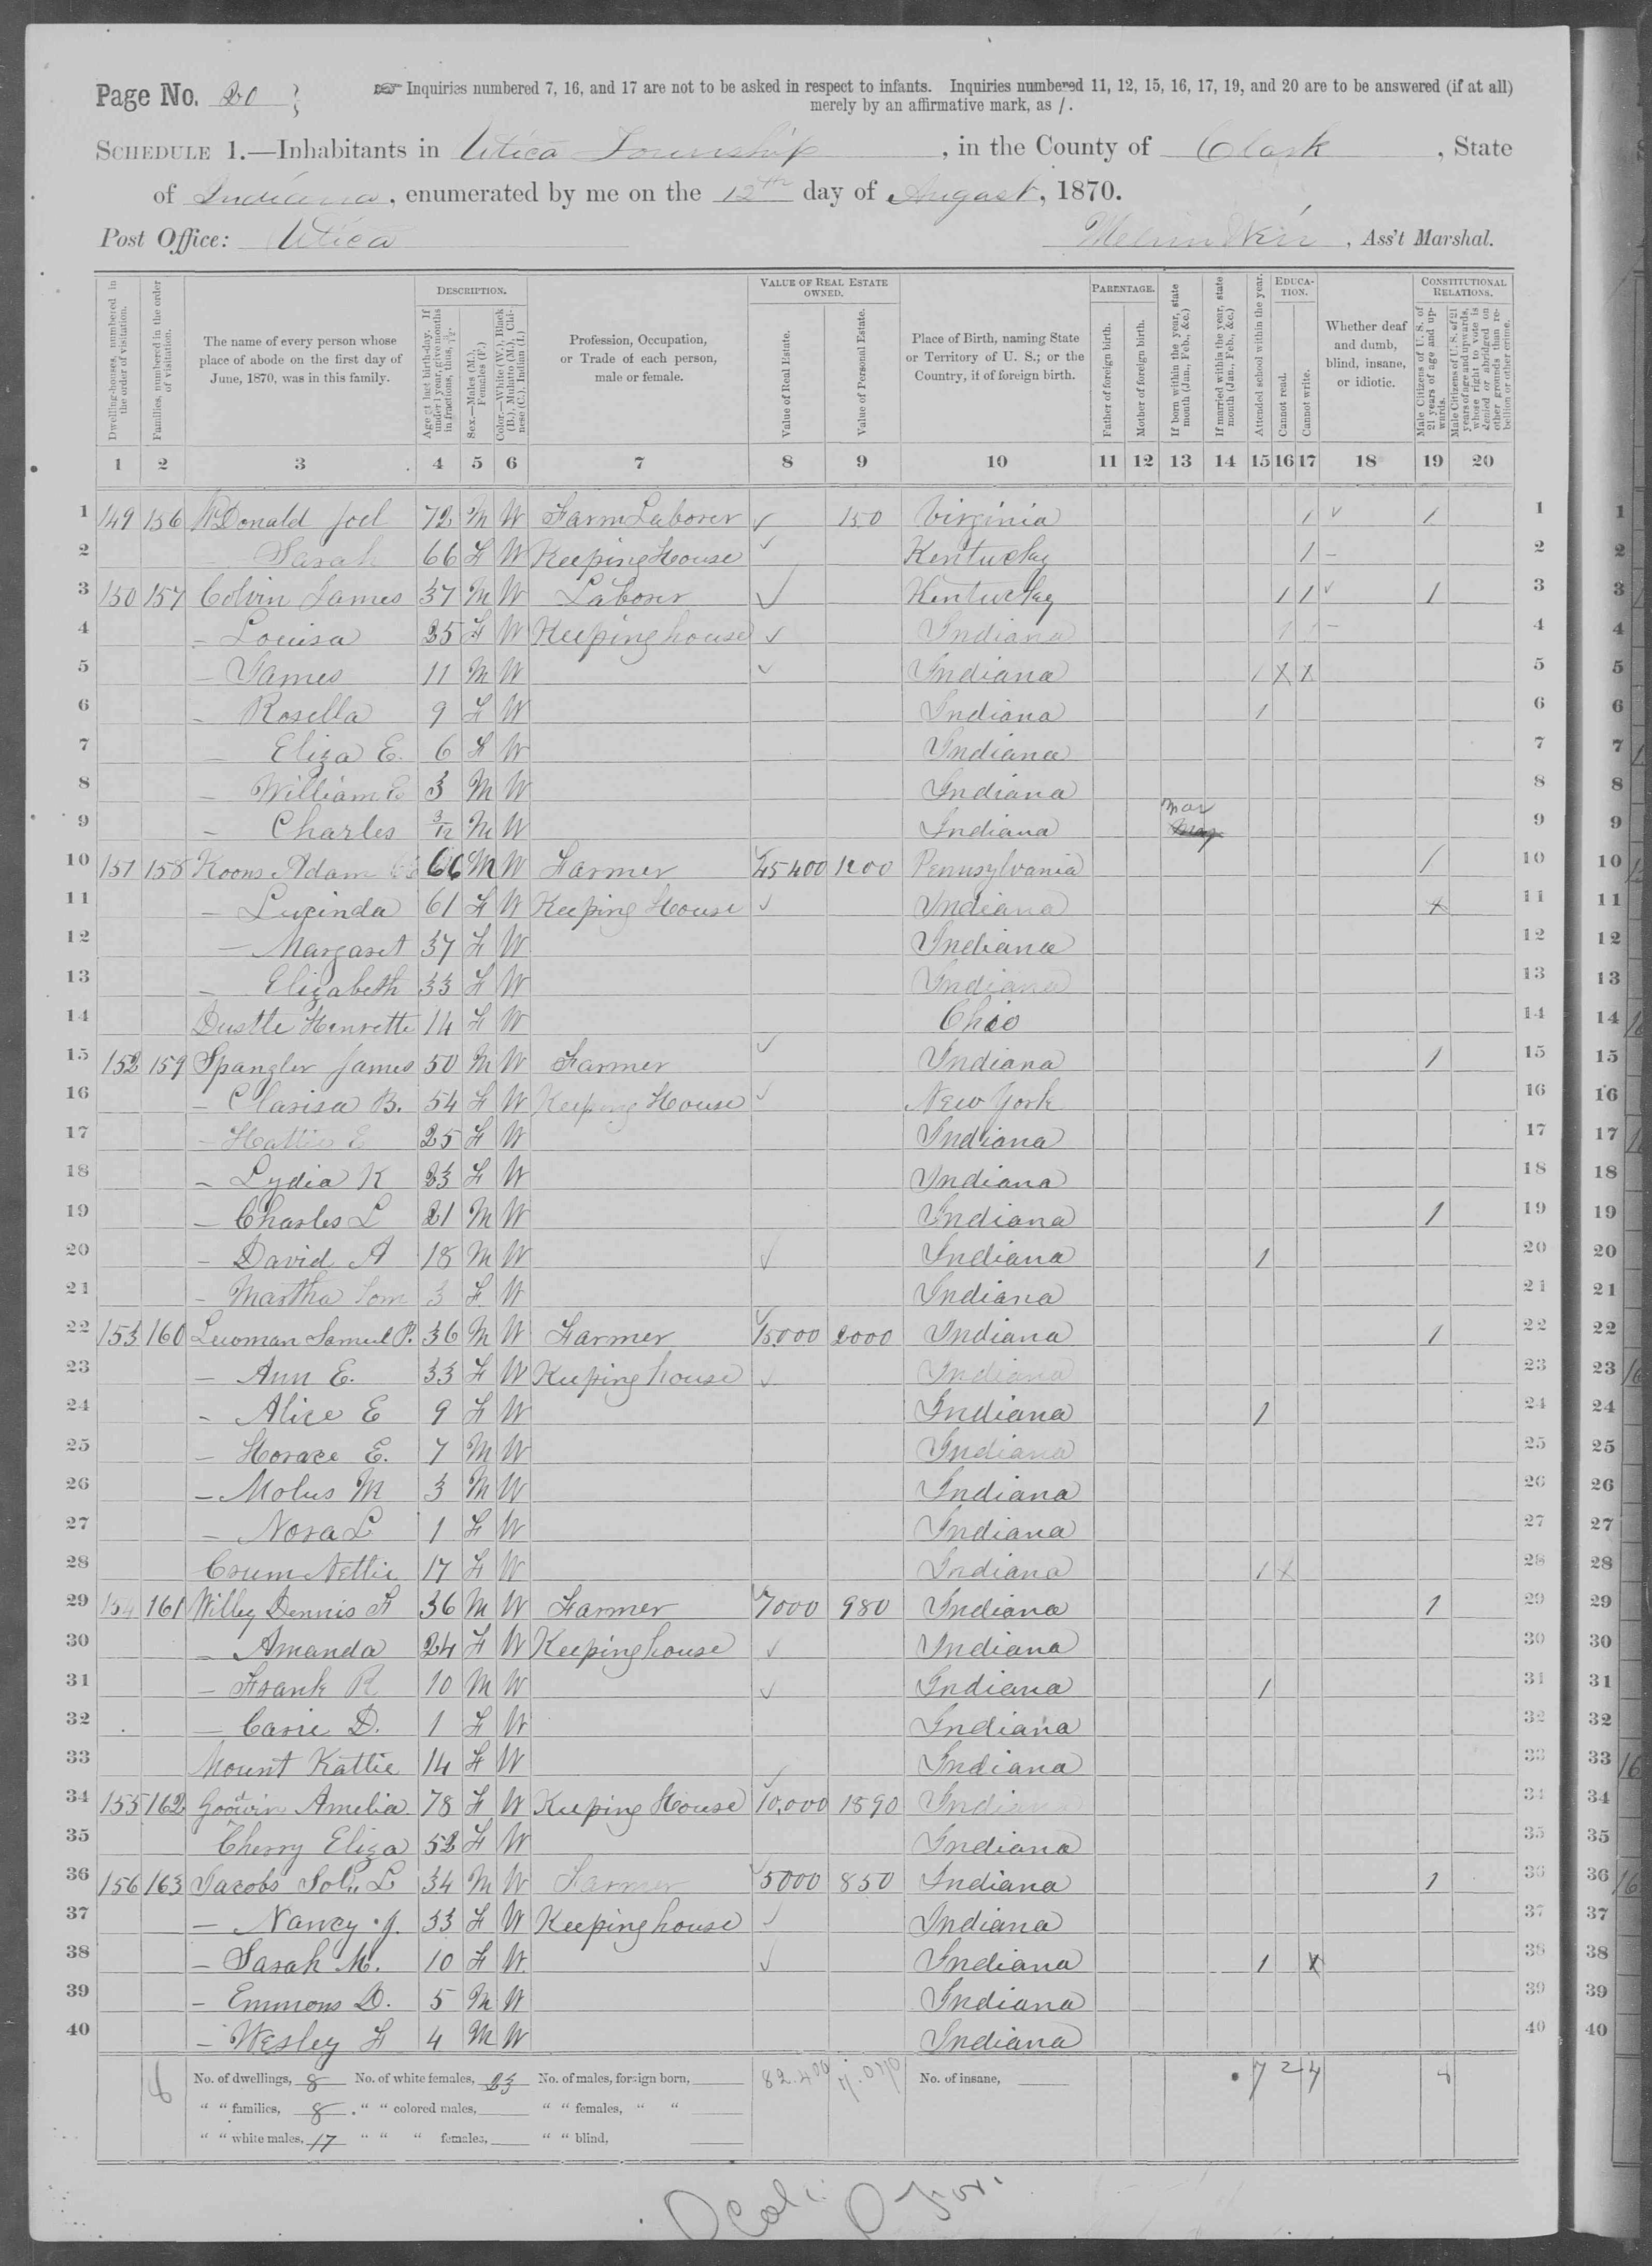 Page No. 20
Inquiries numbered 7, 16, and 17 are not to be asked in respect to infants. Inquiries numbered 11, 12, 15, 16, 17, 19, and 20 are to be answered (if at all)
merely by an affirmative mark, as /.
SCHEDULE 1.—Inhabitants in Utica Township, in the County of Clark, State
of Indiana, enumerated by me on the 12th day of August, 1870.
Post Office: Utica , Ass't Marshal.
Dwelling-houses, numbered in the order of visitation.
Families, numbered in the order of visitation.
The name of every person whose place of abode on the first day of June, 1870, was in this family.
DESCRIPTION.
Age at last birth-day. If under 1 year, give months in fractions, thus, 3/12.
Sex.—Males (M.), Females (F.)
Color.—White (W.), Black (B.), Mulatto (M.), Chinese (C.), Indian (I.)
Profession, Occupation, or Trade of each person, male or female.
VALUE OF REAL ESTATE OWNED.
Value of Real Estate.
Value of Personal Estate.
Place of Birth, naming State or Territory of U. S.; or the Country, if of foreign birth.
PARENTAGE.
Father of foreign birth.
Mother of foreign birth.
If born within the year, state month (Jan., Feb., &c.)
If married within the year, state month (Jan., Feb., &c.)
Attended school within the year.
EDUCATION.
Cannot read.
Cannot write.
Whether deaf and dumb, blind, insane, or idiotic.
CONSTITUTIONAL RELATIONS.
Male Citizens of U. S. of 21 years of age and upwards.
Male Citizens of U. S. of 21 years of age and upwards, whose right to vote is denied or abridged on other grounds than rebellion or other crime.
1 2 3 4 5 6 7 8 9 10 11 12 13 14 15 16 17 18 19 20
1 149 156 McDonald Joel 72 M W Farm Laborer 150 Virginia / / 1
2 Sarah 66 F W Keeping House Kentucky / 2
3 150 157 Colvin James 37 M W Laborer Kentucky / / / 3
4 – Louisa 35 F W Keeping house Indiana / / 4
5 – James 11 M W Indiana / X X 5
6 – Rosella 9 F W Indiana / 6
7 – Eliza E. 6 F W Indiana 7
8 – William E 3 M W Indiana 8
9 – Charles 3/12 M W Indiana Mar 9
10 151 158 Koons Adam 66 M W Farmer 45400 1200 Pennsylvania / 10
11 – Lucinda 61 F W Keeping House Indiana X 11
12 – Margaret 37 F W Indiana 12
13 – Elizabeth 33 F W Indiana 13
14 Dustte Henrette 14 F W Ohio 14
15 152 159 Spangler James 50 M W Farmer Indiana 1 15
16 – Clarisa B. 54 F W Keeping House New York 16
17 – Hattie E 25 F W Indiana 17
18 – Lydia K 23 F W Indiana 18
19 – Charles L 21 M W Indiana 1 19
20 – David A 18 M W Indiana 1 20
21 – Martha 3 F W Indiana 21
22 153 160 Luoman Samuel P. 36 M W Farmer 15000 2000 Indiana 1 22
23 – Ann E. 33 F W Keeping house Indiana 23
24 – Alice E 9 F W Indiana 1 24
25 – Horace E. 7 M W Indiana 25
26 – Molus M 3 M W Indiana 26
27 – Nora L 1 F W Indiana 27
28 Crum Nettie 17 F W Indiana / X 28
29 154 161 Willey Dennis F 36 M W Farmer 7000 980 Indiana 1 29
30 – Amanda 24 F W Keeping house Indiana 30
31 – Frank R 10 M W Indiana 1 31
32 – Carie D. 1 F W Indiana 32
33 Mount Kattie 14 F W Indiana 33
34 155 162 Goodwin Amelia 78 F W Keeping House 10,000 1890 Indiana 34
35 Cherry Eliza 52 F W Indiana 35
36 156 163 Jacobs Sol. L 34 M W Farmer 5000 850 Indiana 1 36
37 – Nancy J. 33 F W Keeping house Indiana 37
38 – Sarah M. 10 F W Indiana 1 X 38
39 – Emmons D. 5 M W Indiana 39
40 – Wesley F 4 M W Indiana 40
No. of dwellings, 8 No. of white females, 23 No. of males, foreign born, 82.400 No. of insane, 7 2 4 8
" " families, 8 " " colored males, " " females, " "
" " white males, 17 " " " females, " " blind,